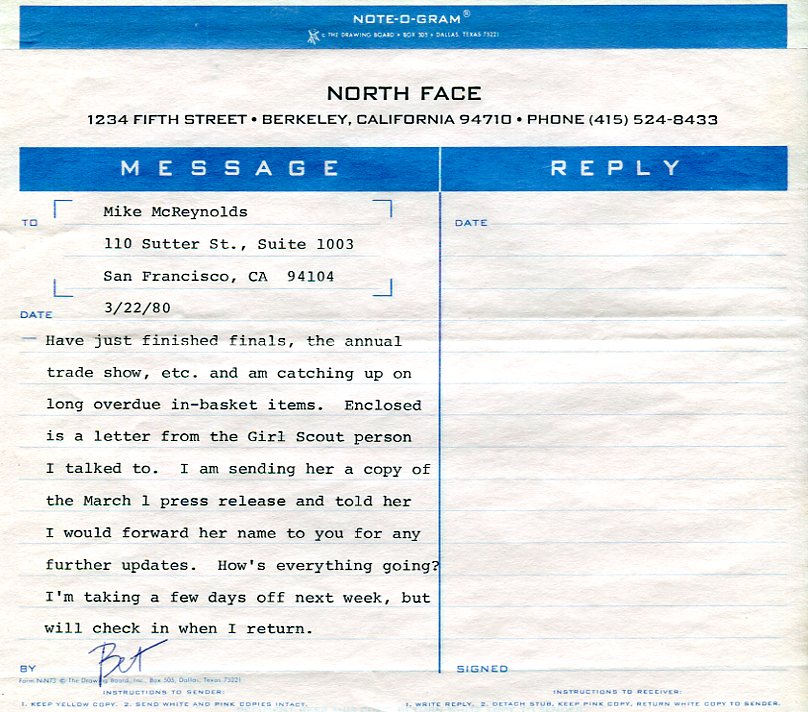 NOTE-O-GRAM®
© THE DRAWING BOARD • BOX 505 • DALLAS, TEXAS 75221
NORTH FACE
1234 FIFTH STREET • BERKELEY, CALIFORNIA 94710 • PHONE (415) 524-8433
MESSAGE
REPLY
TO
Mike McReynolds
110 Sutter St., Suite 1003
San Francisco, CA 94104
DATE
3/22/80
Have just finished finals, the annual
trade show, etc. and am catching up on
long overdue in-basket items. Enclosed
is a letter from the Girl Scout person
I talked to. I am sending her a copy of
the March 1 press release and told her
I would forward her name to you for any
further updates. How's everything going?
I'm taking a few days off next week, but
will check in when I return.
BY
Bet
Form N-N73 © The Drawing Board, Inc., Box 505, Dallas, Texas 75221
INSTRUCTIONS TO SENDER:
1. KEEP YELLOW COPY. 2. SEND WHITE AND PINK COPIES INTACT.
DATE
SIGNED
INSTRUCTIONS TO RECEIVER:
1. WRITE REPLY. 2. DETACH STUB, KEEP PINK COPY, RETURN WHITE COPY TO SENDER.